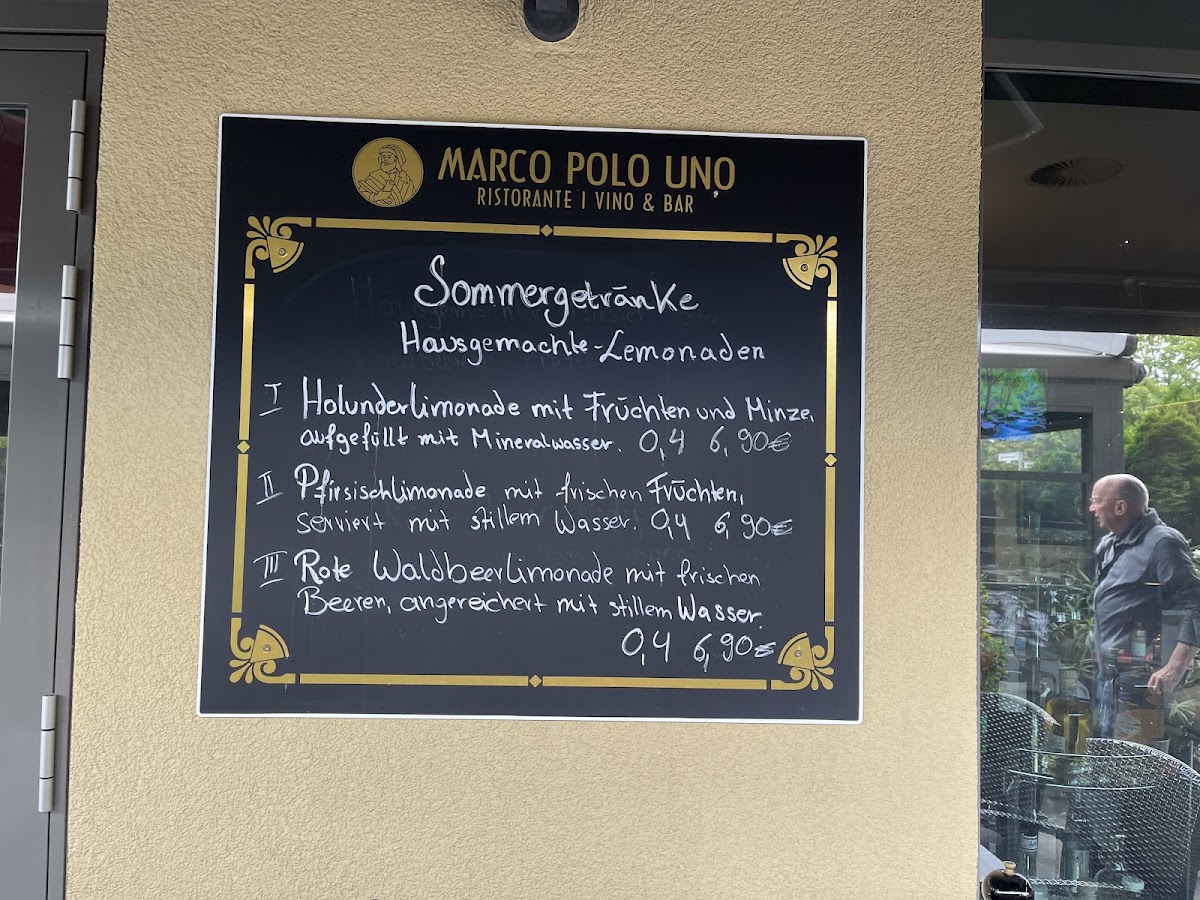 MARCO POLO UNO
RISTORANTE | VINO & BAR
Sommergetränke
Hausgemachte-Lemonaden
I Holunderlimonade mit Früchten und Minze,
aufgefüllt mit Mineralwasser. 0,4 6,90€
II Pfirsischlimonade mit frischen Früchten,
serviert mit stillem Wasser. 0,4 6,90€
III Rote Waldbeerlimonade mit frischen
Beeren, angereichert mit stillem Wasser.
0,4 6,90€